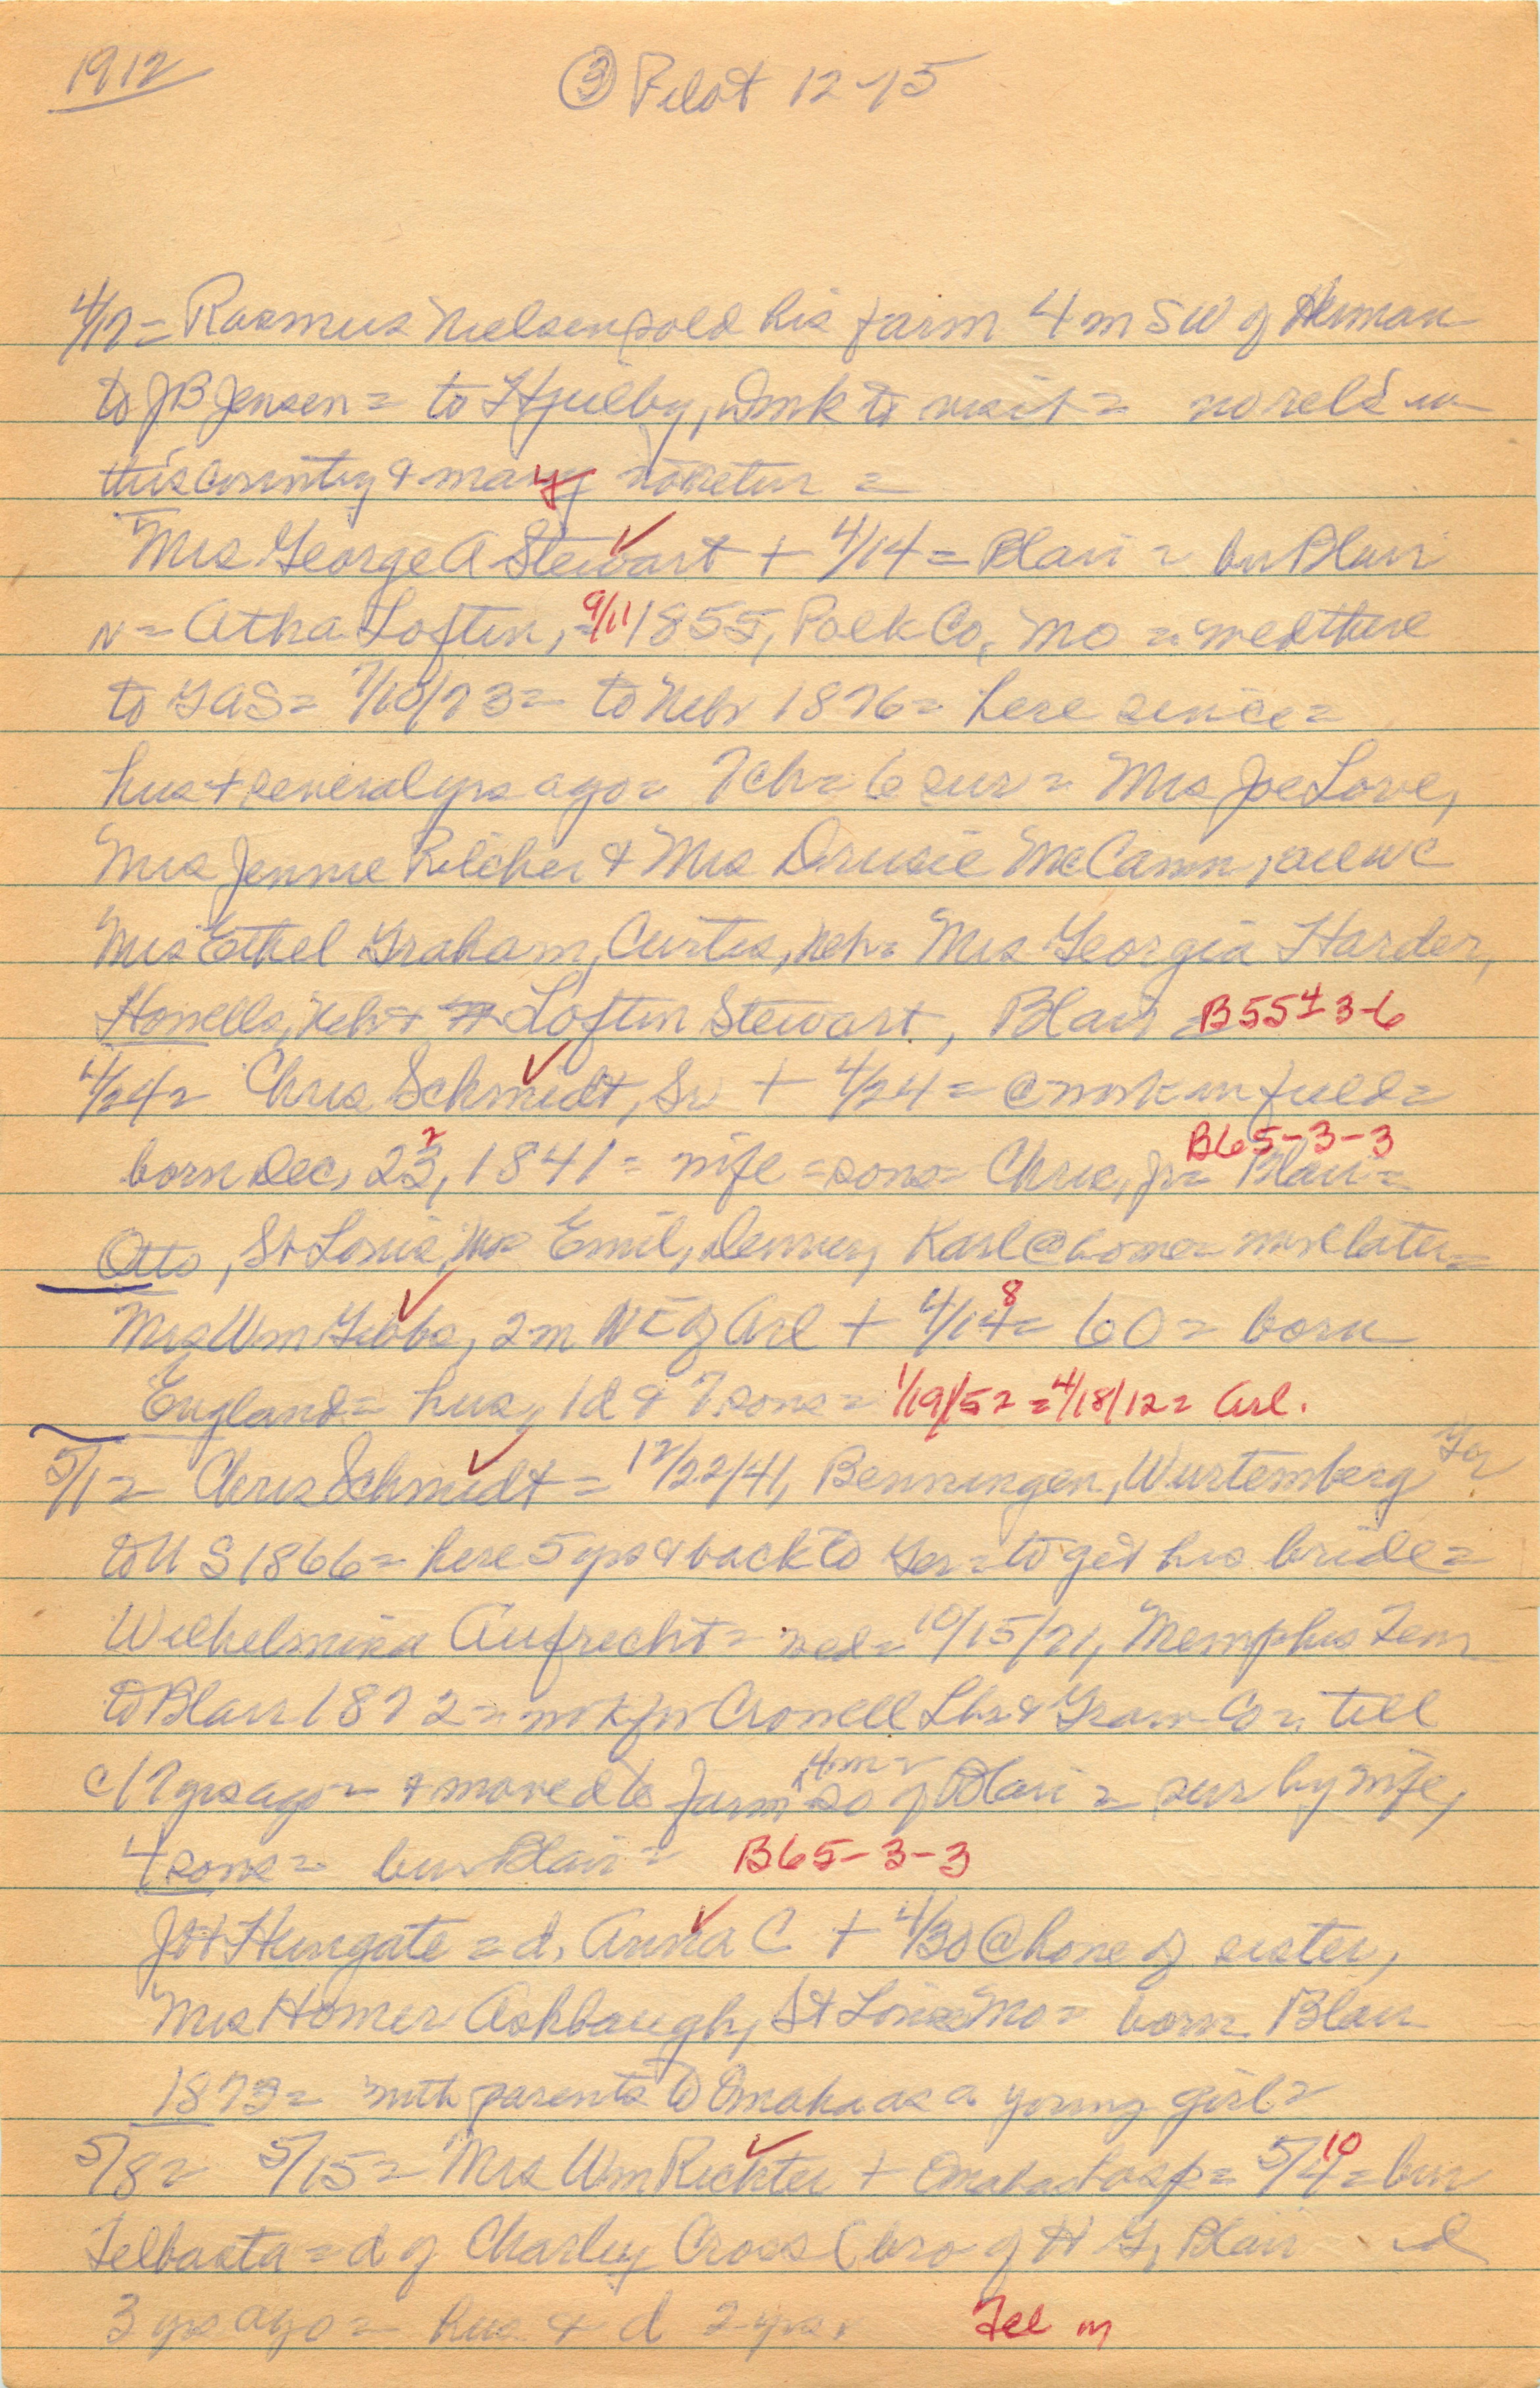 1912
③ Pilot 12-15
4/17 = Rasmus Nielsen sold his farm 4 m SW of Herman
to JB Jensen = to Hjulby, Dmk to visit = no rel's in
this country & may not retur =
Mrs George A Stewart + 4/14 = Blair = bur Blair
n = Atha Loftin, = 9/11 1855, Polk Co, Mo = wed there
to GAS = 7/10/73 = to Nebr 1876 = here since =
hus + several yrs ago = 7 ch = 6 sur = Mrs Joe Love,
Mrs Jennie Pilcher & Mrs Drusie McCann, all WC
Mrs Ethel Graham, Curtis, Neb = Mrs Georgia Harder,
Howells, Neb + Loftin Stewart, Blair = B55 4-3-6
4/24 = Chris Schmidt, Sr + 4/24 = @ work in field =
born Dec, 23, 2 1841 = wife = sons = Chris, Jr = Blair = B65-3-3
Otto, St Louis, Mo = Emil, Denver, Karl @ home = more later =
Mrs Wm Gibbs, 2 m NE of Arl + 4/14 8 = 60 = born
England = hus, 1 d & 7 sons = 1/19/52 = 4/18/12 = Arl.
5/1 = Chris Schmidt = 12/22/41, Benningen, Wurtemberg, Ger
to US 1866 = here 5 yrs & back to Ger = to get his bride =
Wilhelmina Aufrecht = wed = 10/15/71, Memphis Tenn
to Blair 1872 = wk for Crowell Lbr & Grain Co = till
c 17 yrs ago = & moved to farm 4 m so of Blair = sur by wife,
4 sons = bur Blair = B65-3-3
Jot Hungate = d, Anna C + 4/30 @ home of sister,
Mrs Homer Ashbaugh, St Louis Mo = born Blair
1873 = with parents to Omaha as a young girl =
5/8 = 5/15 = Mrs Wm Richter + Omaha hosp = 5/4 10 = bur
Telbasta = d of Charley Cross (bro of H G, Blair
3 yrs ago = hus & d 2 yrs. Tel m